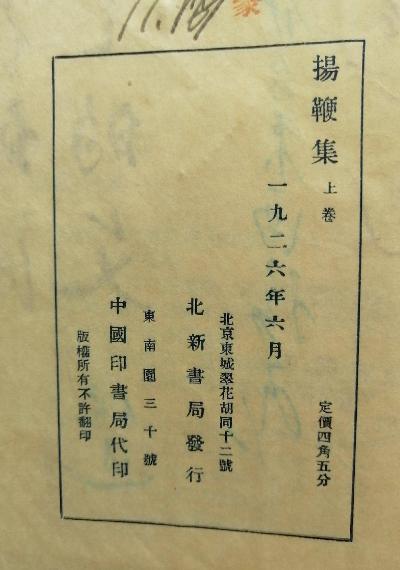 揚鞭集 上卷
定價四角五分
一九二六年六月
北京東城翠花胡同十二號
北新書局發行
東南園三十號
中國印書局代印
版權所有不許翻印